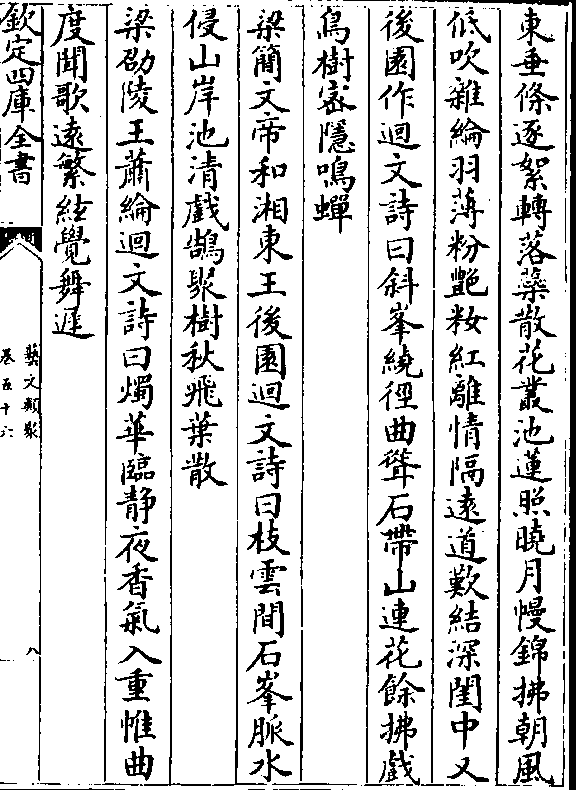 東垂條逐絮轉落蘂散花叢池蓮照曉月幔錦拂朝風
低吹雜綸羽薄粉艶妝紅離情隔遠道歎結深閨中又
後園作迴文詩曰斜峯繞徑曲聳石帶山連花餘拂戲
鳥樹密隱鳴蟬
梁簡文帝和湘東王後園迴文詩曰枝雲間石峯脈水
侵山岸池清戲鵠聚樹秋飛葉散
梁邵陵王蕭綸迴文詩曰燭華臨静夜香氣入重帷曲
度聞歌遠繁絃覺舞遲
欽定四庫全書
藝文類聚
卷五十六
八